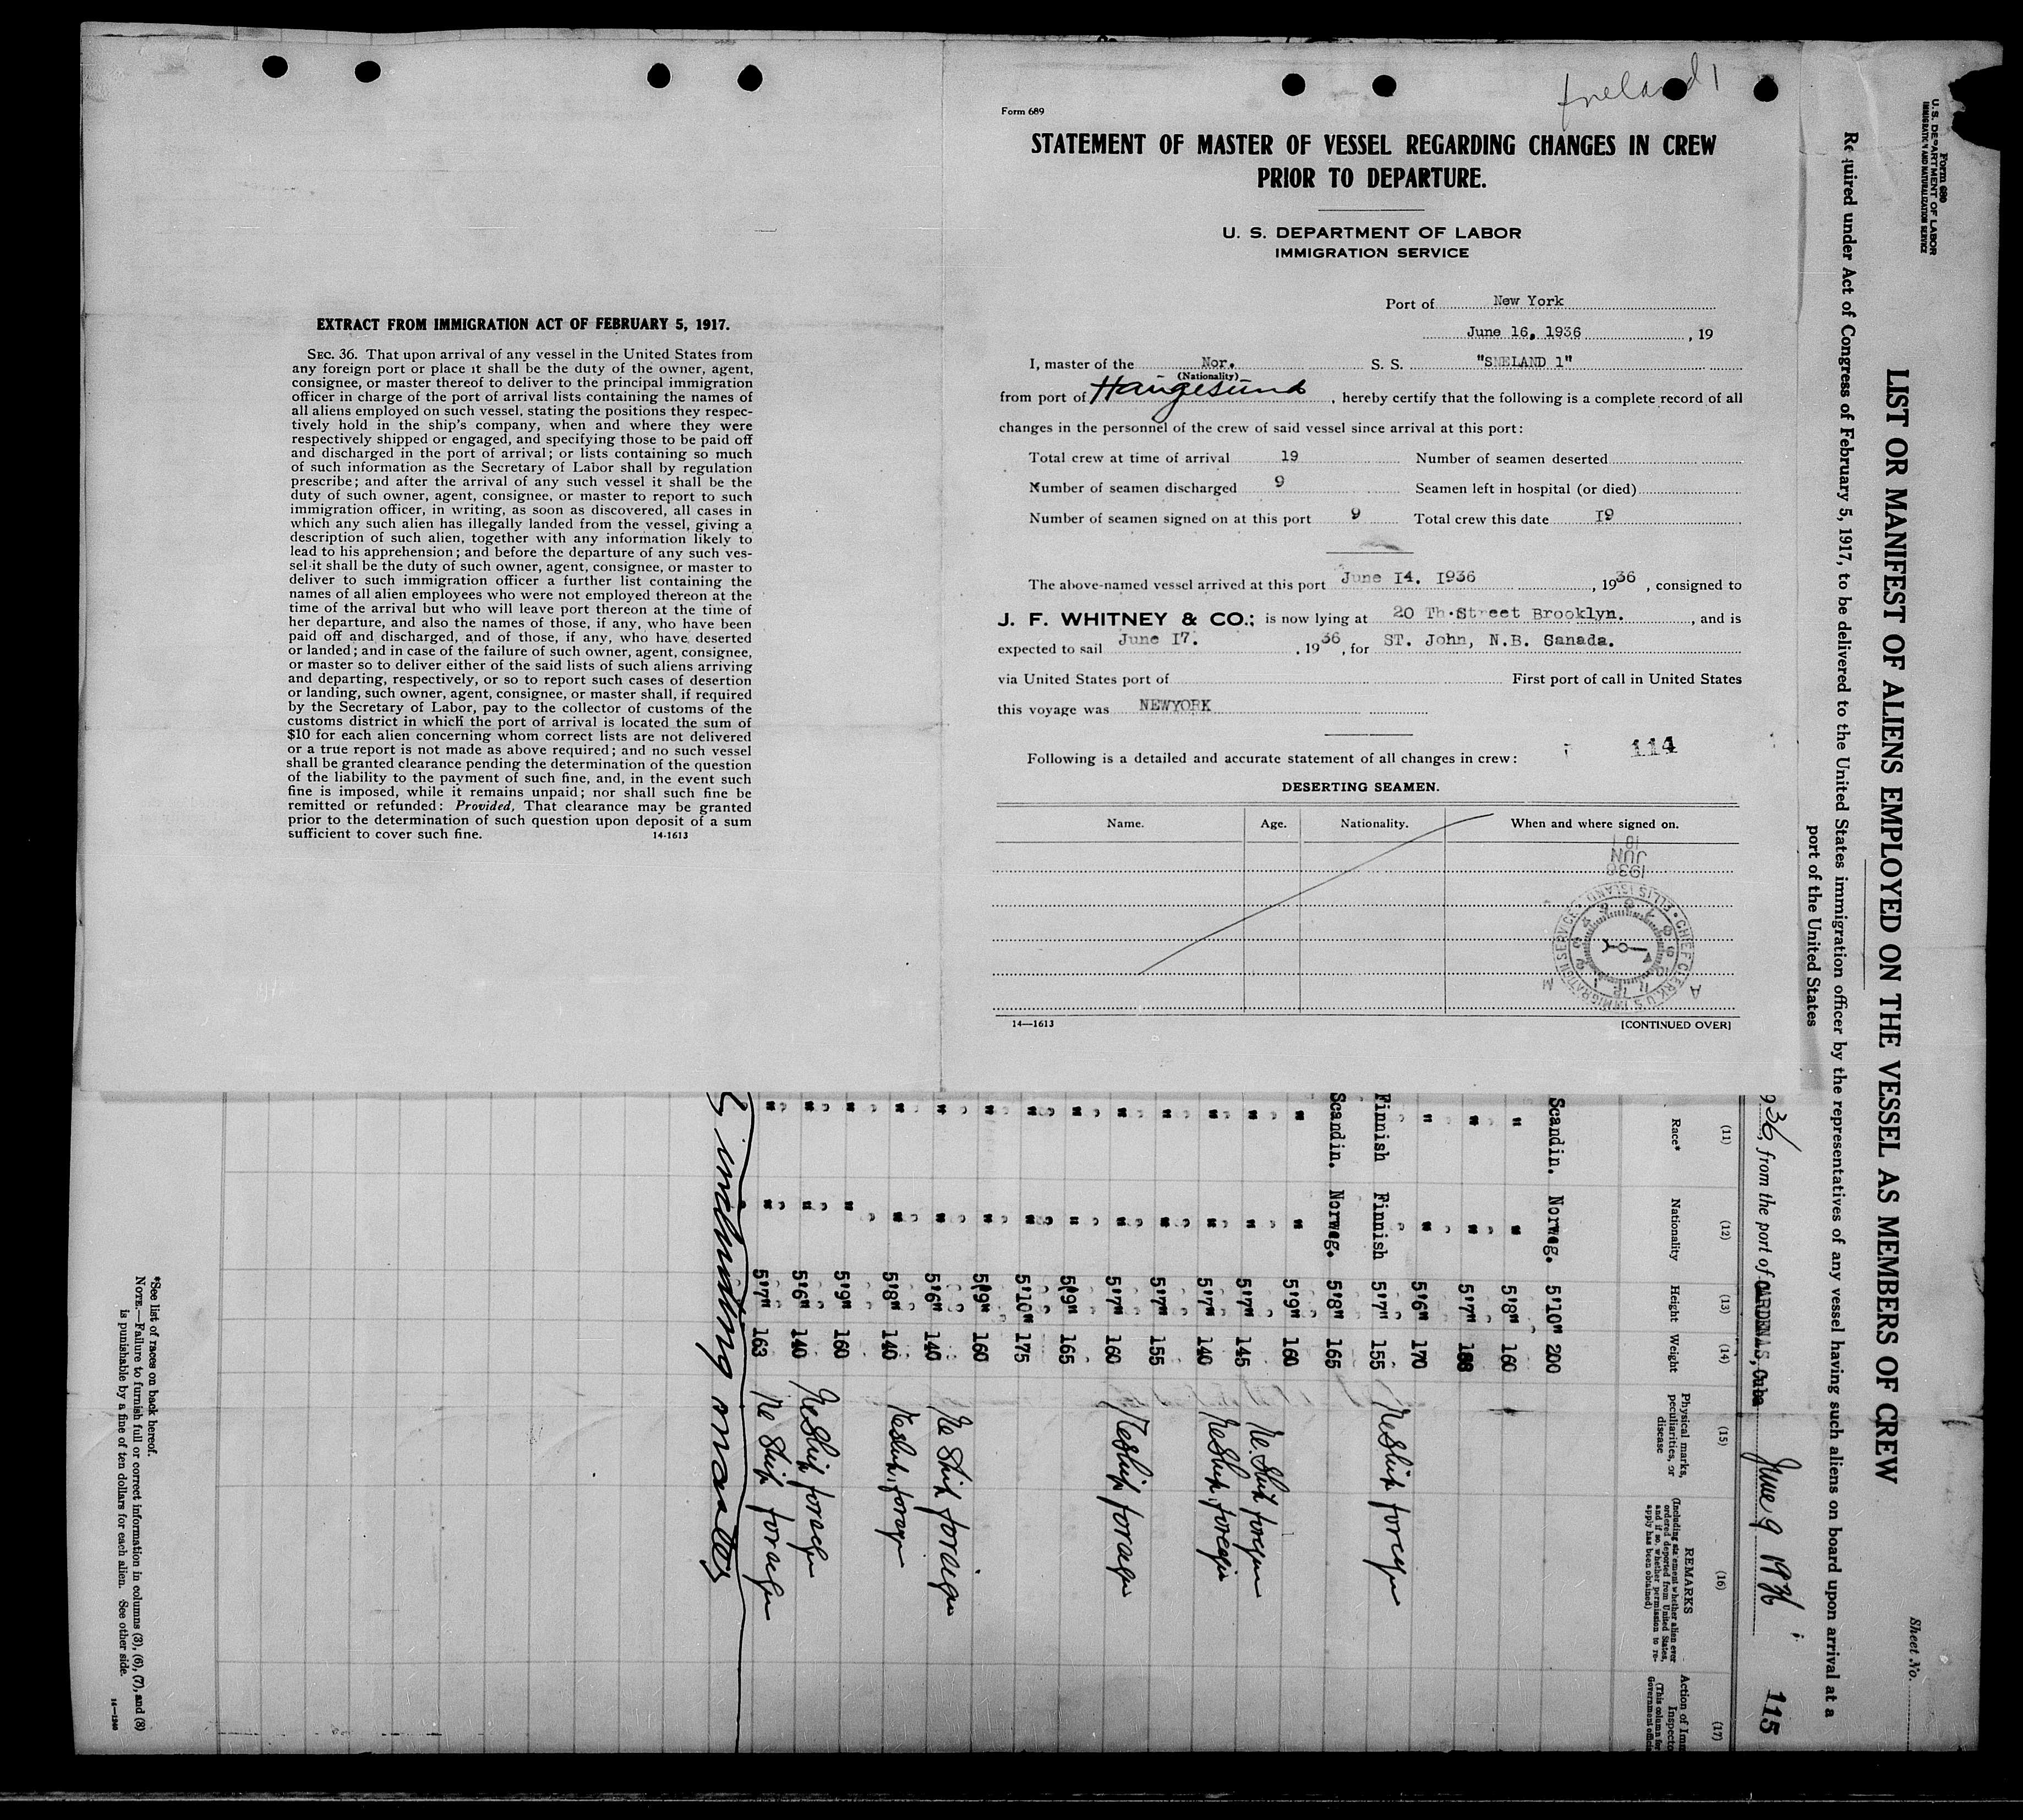 Form 689
STATEMENT OF MASTER OF VESSEL REGARDING CHANGES IN CREW
PRIOR TO DEPARTURE.
U. S. DEPARTMENT OF LABOR
IMMIGRATION SERVICE
Port of New York
June 16, 1936, 19
I, master of the Nor. S. S. "SMELAND 1"
(Nationality)
from port of Haugesund, hereby certify that the following is a complete record of all
changes in the personnel of the crew of said vessel since arrival at this port:
Total crew at time of arrival 19 Number of seamen deserted
Number of seamen discharged 9 Seamen left in hospital (or died)
Number of seamen signed on at this port 9 Total crew this date I9
The above-named vessel arrived at this port June I4. I936, 1936, consigned to
J. F. WHITNEY & CO.; is now lying at 20 Th.Street Brooklyn., and is
expected to sail June I7. , 1936, for ST. John, N.B. Sanada.
via United States port of First port of call in United States
this voyage was NEWYORK
114
Following is a detailed and accurate statement of all changes in crew:
DESERTING SEAMEN.
Name. Age. Nationality. When and where signed on.
1936
JUN
CHIEF CLERK U.S. IMMIGRATION SERVICE • ELLIS ISLAND
A M
14—1613 [CONTINUED OVER]
EXTRACT FROM IMMIGRATION ACT OF FEBRUARY 5, 1917.
SEC. 36. That upon arrival of any vessel in the United States from
any foreign port or place it shall be the duty of the owner, agent,
consignee, or master thereof to deliver to the principal immigration
officer in charge of the port of arrival lists containing the names of
all aliens employed on such vessel, stating the positions they respec-
tively hold in the ship's company, when and where they were
respectively shipped or engaged, and specifying those to be paid off
and discharged in the port of arrival; or lists containing so much
of such information as the Secretary of Labor shall by regulation
prescribe; and after the arrival of any such vessel it shall be the
duty of such owner, agent, consignee, or master to report to such
immigration officer, in writing, as soon as discovered, all cases in
which any such alien has illegally landed from the vessel, giving a
description of such alien, together with any information likely to
lead to his apprehension; and before the departure of any such ves-
sel it shall be the duty of such owner, agent, consignee, or master to
deliver to such immigration officer a further list containing the
names of all alien employees who were not employed thereon at the
time of the arrival but who will leave port thereon at the time of
her departure, and also the names of those, if any, who have been
paid off and discharged, and of those, if any, who have deserted
or landed; and in case of the failure of such owner, agent, consignee,
or master so to deliver either of the said lists of such aliens arriving
and departing, respectively, or so to report such cases of desertion
or landing, such owner, agent, consignee, or master shall, if required
by the Secretary of Labor, pay to the collector of customs of the
customs district in which the port of arrival is located the sum of
$10 for each alien concerning whom correct lists are not delivered
or a true report is not made as above required; and no such vessel
shall be granted clearance pending the determination of the question
of the liability to the payment of such fine, and, in the event such
fine is imposed, while it remains unpaid; nor shall such fine be
remitted or refunded: Provided, That clearance may be granted
prior to the determination of such question upon deposit of a sum
sufficient to cover such fine. 14-1613
Form 689
U. S. DEPARTMENT OF LABOR
IMMIGRATION AND NATURALIZATION SERVICE
Sheet No.
LIST OR MANIFEST OF ALIENS EMPLOYED ON THE VESSEL AS MEMBERS OF CREW
Required under Act of Congress of February 5, 1917, to be delivered to the United States immigration officer by the representatives of any vessel having such aliens on board upon arrival at a
port of the United States
936, from the port of CARDENAS, Cuba June 9 1936 115
(11) (12) (13) (14) (15) (16) (17)
Race* Nationality Height Weight Physical marks, peculiarities, or disease REMARKS
(Including statement whether alien ever ordered deported from United States, and if so, whether permission to re-apply has been obtained)
Scandin. Norweg. 5'10" 200
" " 5'8" 160
" " 5'7"
" " 5'6" 170
Finnish Finnish 5'7" 155 Reship foreign
Scandin. Norweg. 5'8" 165
" " 5'9" 160
" " 5'7" 145 Re Ship foreign
" " 5'7" 140 Reship foreign
" " 5'7" 155
" " 5'7" 160 Reship foreign
" " 5'9" 165
" " 5'10" 175
" " 5'9" 160
" " 5'6" 140 Re Ship foreign
" " 5'8" 140 Reship foreign
" " 5'9" 160
" " 5'6" 140 Reship foreign
" " 5'7" 163 Re Ship foreign
including master
*See list of races on back hereof.
NOTE.—Failure to furnish full or correct information in columns (3), (6), (7), and (8)
is punishable by a fine of ten dollars for each alien. See other side.